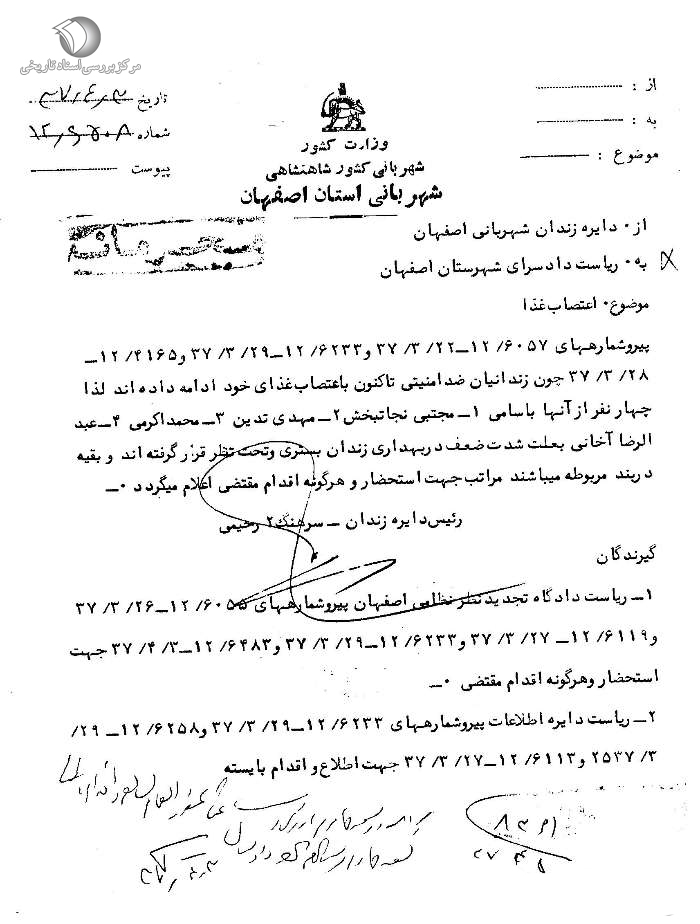 مرکز بررسی اسناد تاریخی
از :
به :
موضوع :
وزارت کشور
شهربانی کشور شاهنشاهی
شهربانی استان اصفهان
تاریخ ۳۷٫۴٫۳
شماره
پیوست
محرمانه
از ۰ دایره زندان شهربانی اصفهان
به ۰ ریاست دادسرای شهرستان اصفهان
موضوع ۰ اعتصاب غذا
پیروشمارههای ۶۰۵۷ /۱۲ــ۲۲ /۳ /۳۷ و۶۲۳۳ /۱۲ــ۲۹ /۳ /۳۷ و۴۱۶۵ /۱۲ــ
۲۸ /۳ /۳۷ چون زندانیان ضدامنیتی تاکنون باعتصاب غذای خود ادامه داده اند لذا
چهار نفر از آنها باسامی ۱ــ مجتبی نجاتبخش ۲ــ مهدی تدین ۳ــ محمد اکرمی ۴ــ عبد
الرضا آخانی بعلت شدت ضعف دربهداری زندان بستری وتحت نظر قرار گرفته اند و بقیه
دربند مربوطه میباشند مراتب جهت استحضار و هرگونه اقدام مقتضی اعلام میگردد ۰ــ
رئیس دایره زندان ــ سرهنگ۲ رحیمی
گیرندگان
۱ــ ریاست دادگاه تجدیدنظر نظامی اصفهان پیروشمارههای ۶۰۵۵ /۱۲ــ۲۶ /۳ /۳۷
و۶۱۱۹ /۱۲ــ ۲۷ /۳ /۳۷ و۶۲۳۳ /۱۲ــ۲۹ /۳ /۳۷ و۶۴۸۳ /۱۲ــ۳ /۴ /۳۷ جهت
استحضار وهرگونه اقدام مقتضی ۰ــ
۲ــ ریاست دایره اطلاعات پیروشمارههای ۶۲۳۳ /۱۲ــ۲۹ /۳ /۳۷ و۶۲۵۸ /۱۲ــ ۲۹/
۳ /۲۵۳۷ و۶۱۱۳ /۱۲ــ۲۷ /۳ /۳۷ جهت اطلاع و اقدام بایسته